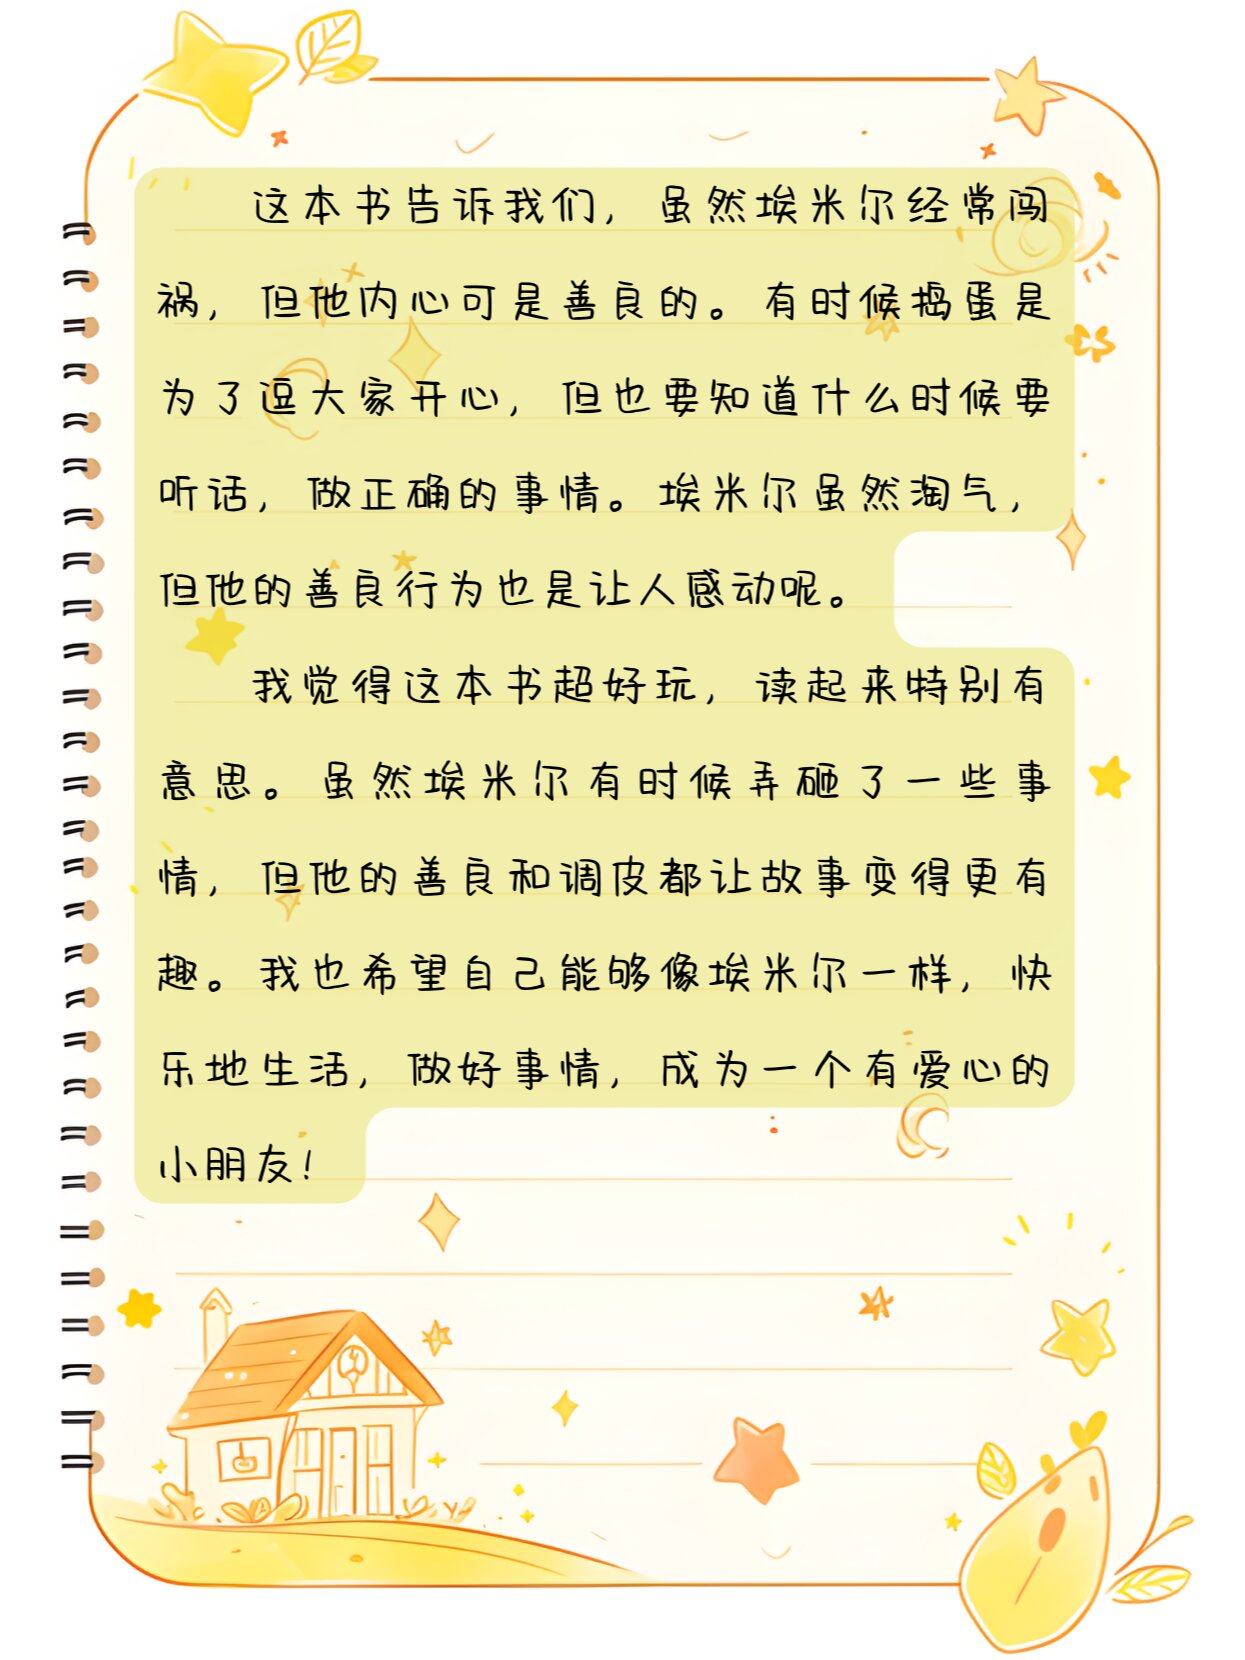 这本书告诉我们，虽然埃米尔经常闯
祸，但他内心可是善良的。有时候捣蛋是
为了逗大家开心，但也要知道什么时候要
听话，做正确的事情。埃米尔虽然淘气，
但他的善良行为也是让人感动呢。
我觉得这本书超好玩，读起来特别有
意思。虽然埃米尔有时候弄砸了一些事
情，但他的善良和调皮都让故事变得更有
趣。我也希望自己能够像埃米尔一样，快
乐地生活，做好事情，成为一个有爱心的
小朋友！